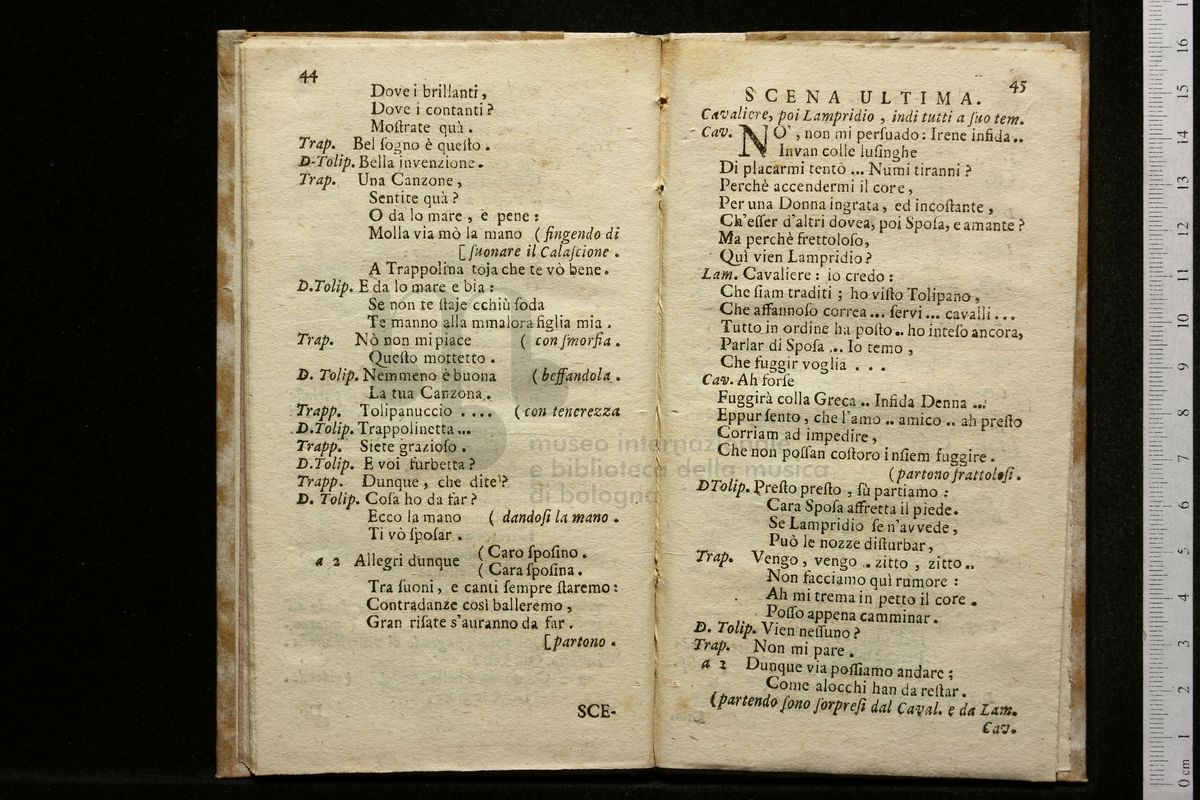 44
Dove i brillanti,
Dove i contanti?
Moſtrate quà.
Trap. Bel ſogno è queſto.
D-Tolip. Bella invenzione.
Trap. Una Canzone,
Sentite quà?
O da lo mare, e pene:
Molla via mò la mano (fingendo di
[ſuonare il Calaſcione.
A Trappolina toja che te vò bene.
D.Tolip. E da lo mare e bia:
Se non te ſtaje cchiù ſoda
Te manno alla mmalora figlia mia.
Trap. Nò non mi piace (con ſmorfia.
Queſto mottetto.
D. Tolip. Nemmeno è buona (beffandola.
La tua Canzona.
Trapp. Tolipanuccio .... (con tenerezza
D.Tolip. Trappolinetta...
Trapp. Siete grazioſo.
D.Tolip. E voi furbetta?
Trapp. Dunque, che dite?
D. Tolip. Coſa ho da far?
Ecco la mano (dandoſi la mano.
Ti vò ſpoſar.
a 2 Allegri dunque (Caro ſpoſino.
(Cara ſpoſina.
Tra ſuoni, e canti ſempre ſtaremo:
Contradanze così balleremo,
Gran riſate s'auranno da far.
[partono.
SCE-
45
SCENA ULTIMA.
Cavaliere, poi Lampridio, indi tutti a ſuo tem.
Cav. NO', non mi perſuado: Irene infida..
Invan colle luſinghe
Di placarmi tentò ... Numi tiranni?
Perchè accendermi il core,
Per una Donna ingrata, ed incoſtante,
Ch'eſſer d'altri dovea, poi Spoſa, e amante?
Ma perchè frettoloſo,
Quì vien Lampridio?
Lam. Cavaliere: io credo:
Che ſiam traditi; ho viſto Tolipano,
Che affannoſo correa... ſervi... cavalli...
Tutto in ordine ha poſto.. ho inteſo ancora,
Parlar di Spoſa ... Io temo,
Che fuggir voglia ...
Cav. Ah forſe
Fuggirà colla Greca.. Infida Denna ...
Eppur ſento, che l'amo.. amico.. ah preſto
Corriam ad impedire,
Che non poſſan coſtoro inſiem fuggire.
(partono frattoloſi.
DTolip. Preſto preſto, ſù partiamo:
Cara Spoſa affretta il piede.
Se Lampridio ſe n'avvede,
Può le nozze diſturbar,
Trap. Vengo, vengo.. zitto, zitto..
Non facciamo quì rumore:
Ah mi trema in petto il core.
Poſſo appena camminar.
D. Tolip. Vien neſſuno?
Trap. Non mi pare.
a 2 Dunque via poſſiamo andare;
Come alocchi han da reſtar.
(partendo ſono ſorpreſi dal Caval. e da Lam.
Cav.
museo internazionale
e biblioteca della musica
di bologna
16
15
14
13
12
11
10
9
8
7
6
5
4
3
2
1
0 cm